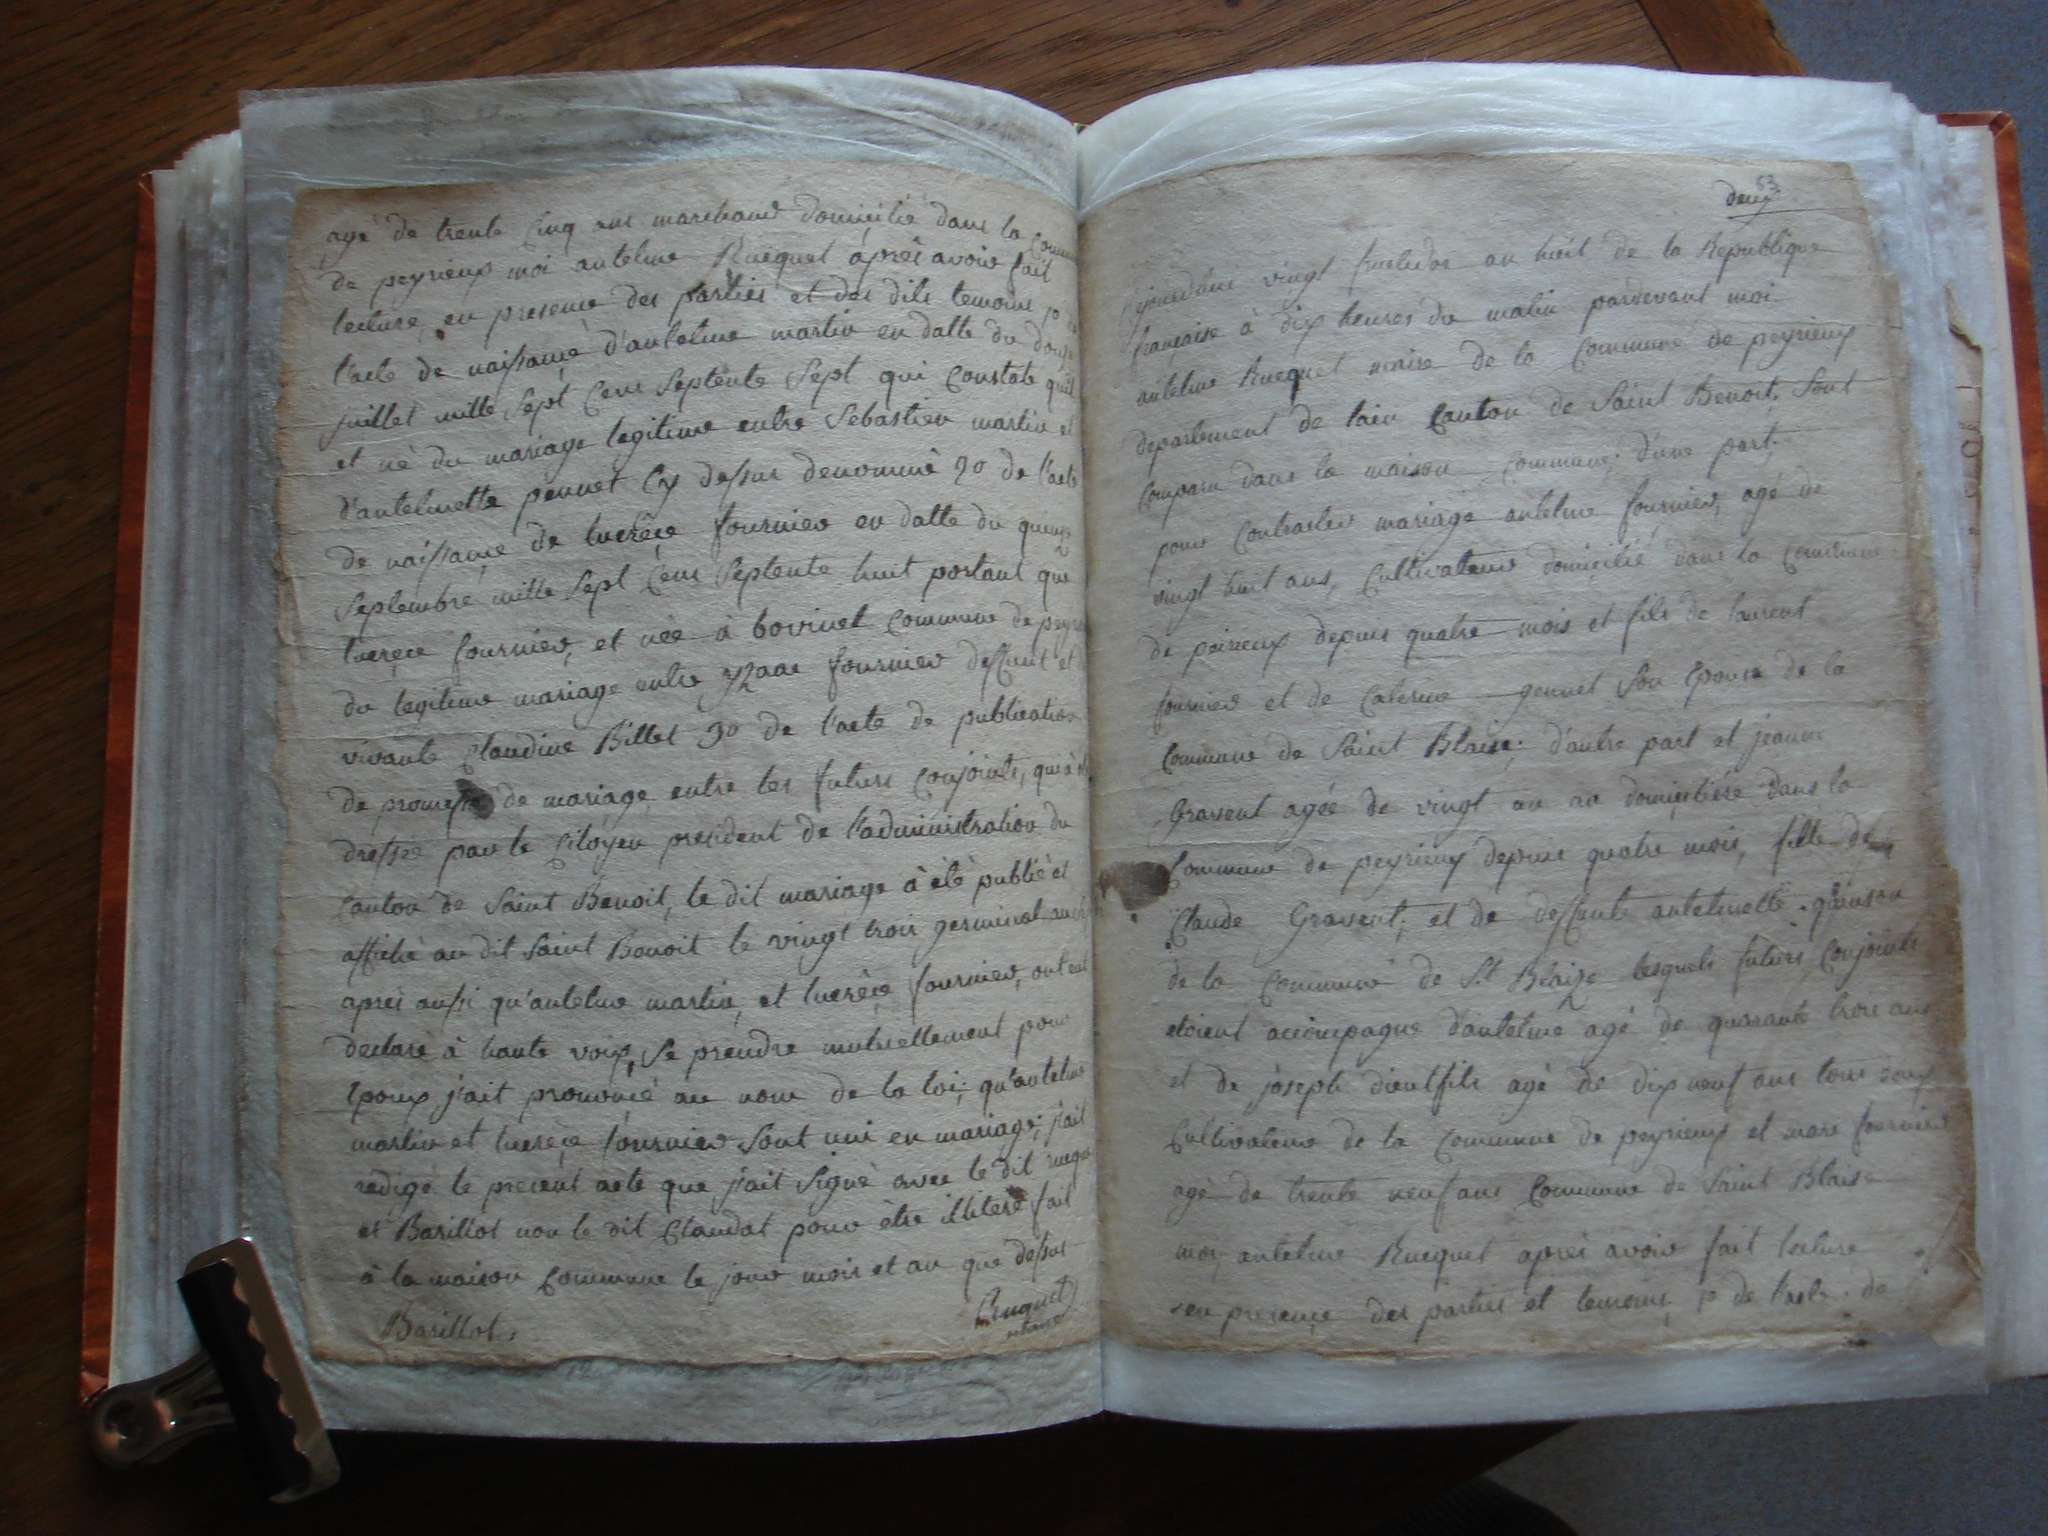 agé de trente Cinq ans marchand domicilié dans la Commune
de peyrieux moi antelme Ruequet après avoir fait
lecture, en presence des parties et des dits temoins 10
l'acte de naissance d'antelme martin en datte du douze
juillet mille Sept Cens Septente Sept qui Constate qu'il
et né du mariage legitime entre Sebastien martin et
d'antelmette pennet Cy dessus denommé 20 de l'acte
de naissance de lucrèce fournier en datte du quenze
Septembre mille Sept Cens Septente huit portant que
lucrece fournier, et née à bovinel Commune de peyr
du legitime mariage entre yzaac fournier deffunt et
vivante Claudine Billet 30 de l'acte de publication
de promesse de mariage entre les futurs Conjoints, qui à été
dressée par le Citoyen president de l'administration du
Canton de Saint Benoit, le dit mariage à été publié et
affiché au dit Saint Benoit le vingt trois germinal an
après aussi qu'antelme martin, et lucrèce fournier, ont eut
declaré à haute voix, Se prendre mutuellement pour
Epoux j'ait prononcé au nom de la loi; qu'antelme
martin et lucrèce fournier Sont uni en mariage; j'ait
redigé le present acte que j'ait Signé avec le dit
et Barillot non le dit Claudat pour être illiteré fait
à la maison Commune le jour mois et an que dessus
Barillot
Ruquet
53
deux
jourdhui vingt fructidor an huit de la Republique
française à dix heures du matin pardevant moi
antelme Ruequet maire de la Commune de peyrieux
departement de lain Canton de Saint Benoit, Sont
Comparu dans la maison Commune; d'une part
pour Contracter mariage antelme fournier, agé de
vingt huit ans, Cultivateur domicilié dans la Commune
de peirieux depuis quatre mois et fils de laurent
fournier et de Caterine gennet Son Epouse de la
Commune de Saint Blaise; d'autre part et jeanne
Gravent agée de vingt un an domiciliée dans la
Commune de peyrieux depuis quatre mois, fille de
Claude Gravent; et de deffunte antelmette
de la Commune de St Blaize lesquels futurs Conjoints
etoient accompagne d'antelme agé de quarante trois ans
et de joseph dieulfils agé de dix neuf ans tous deux
Cultivateurs de la Commune de peyrieux et marc fournier
agé de trente neuf ans Commune de Saint Blaise
moy antelme Ruequet après avoir fait lecture
en presence des parties et temoins 10 de l'acte de